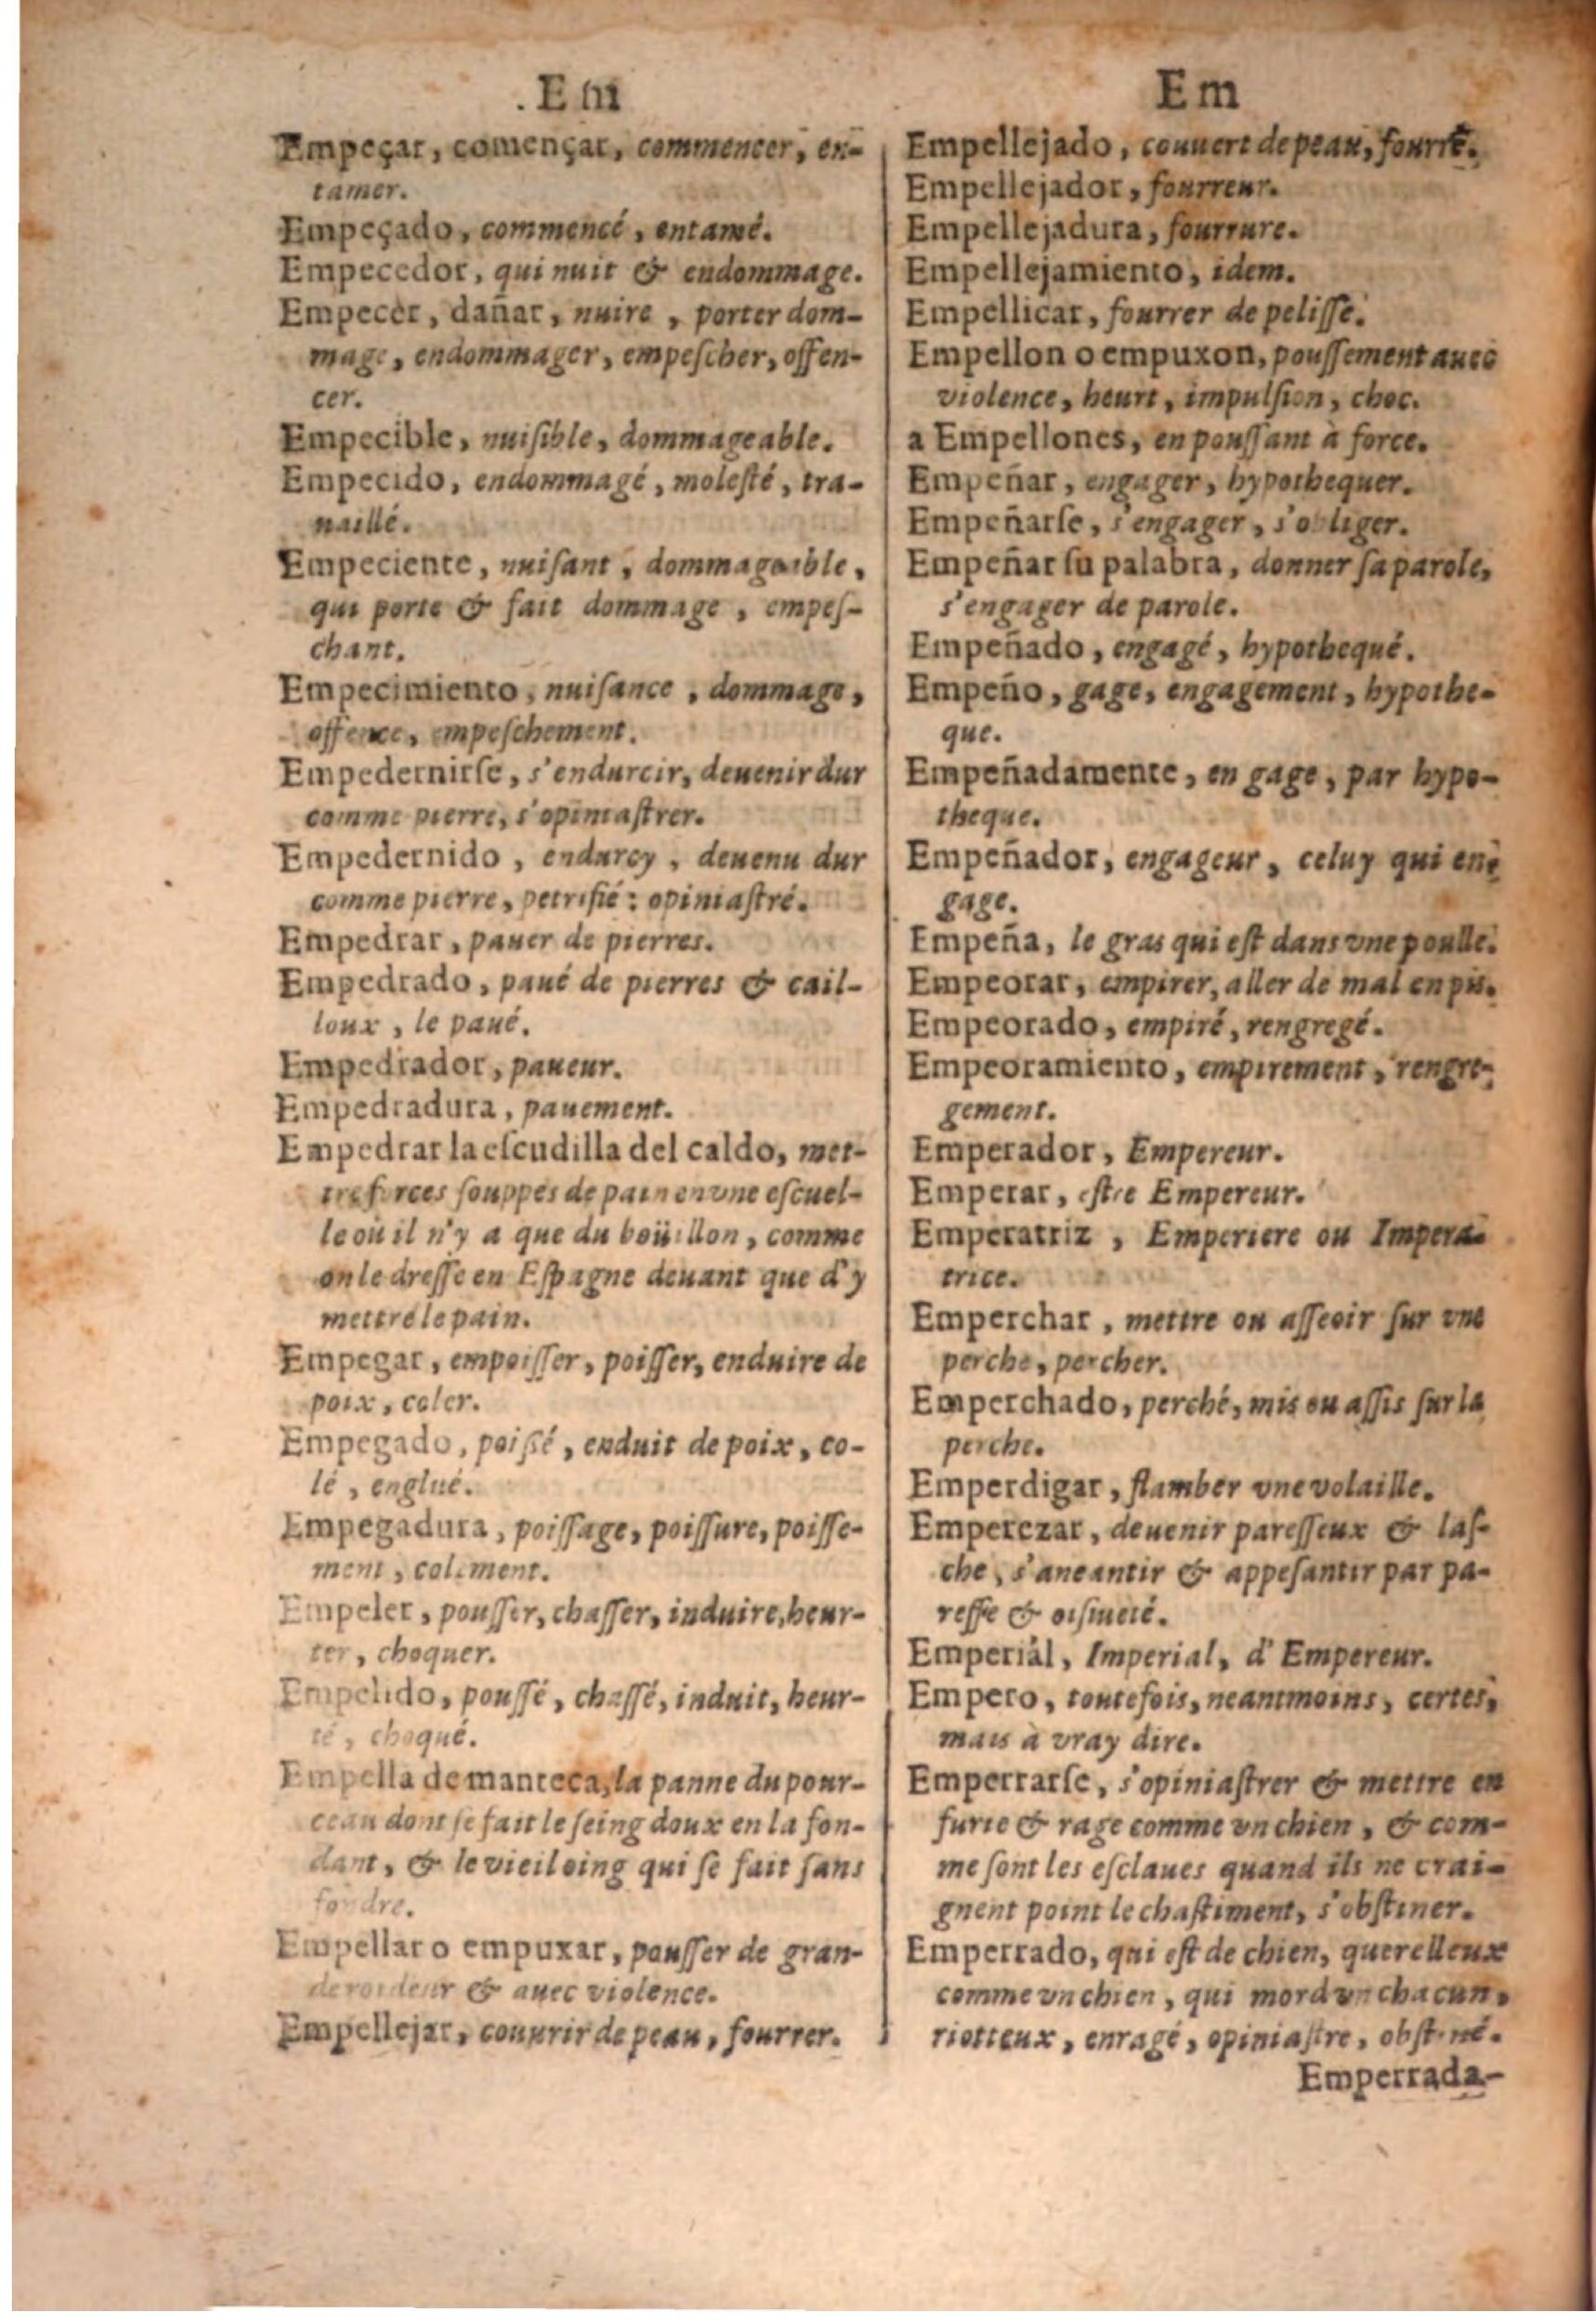 Em
Empeçar, començar, commencer, en-
tamer.
Empeçado, commencé, entamé.
Empecedor, qui nuit & endommage.
Empecer, dañar, nuire, porter dom-
mage, endommager, empeſcher, offen-
cer.
Empecible, nuiſible, dommageable.
Empecido, endommagé, moleſté, tra-
uaillé.
Empeciente, nuiſant, dommageable,
qui porte & fait dommage, empeſ-
chant.
Empecimiento, nuiſance, dommage,
offence, empeſchement.
Empedernirſe, s'endurcir, deuenir dur
comme pierre, s'opiniaſtrer.
Empedernido, endurcy, deuenu dur
comme pierre, petrifié: opiniaſtré.
Empedrar, pauer de pierres.
Empedrado, paué de pierres & cail-
loux, le paué.
Empedrador, paueur.
Empedradura, pauement.
Empedrar la eſcudilla del caldo, met-
tre forces ſouppes de pain en vne eſcuel-
le où il n'y a que du boüillon, comme
on le dreſſe en Eſpagne deuant que d'y
mettre le pain.
Empegar, empoiſſer, poiſſer, enduire de
poix, coler.
Empegado, poiſſé, enduit de poix, co-
lé, englué.
Empegadura, poiſſage, poiſſure, poiſſe-
ment, colement.
Empeler, pouſſer, chaſſer, induire, heur-
ter, choquer.
Empelido, pouſſé, chaſſé, induit, heur-
té, choqué.
Empella de manteca, la panne du pour-
ceau dont ſe fait le ſeing doux en la fon-
dant, & le vieil oing qui ſe fait ſans
fondre.
Empellar o empuxar, pouſſer de gran-
de roideur & auec violence.
Empellejar, couurir de peau, fourrer.
Em
Empellejado, couuert de peau, fourré.
Empellejador, fourreur.
Empellejadura, fourrure.
Empellejamiento, idem.
Empellicar, fourrer de peliſſe.
Empellon o empuxon, pouſſement auec
violence, heurt, impulſion, choc.
a Empellones, en pouſſant à force.
Empeñar, engager, hypothequer.
Empeñarſe, s'engager, s'obliger.
Empeñar ſu palabra, donner ſa parole,
s'engager de parole.
Empeñado, engagé, hypothequé.
Empeño, gage, engagement, hypothe-
que.
Empeñadamente, en gage, par hypo-
theque.
Empeñador, engageur, celuy qui en-
gage.
Empeña, le gras qui eſt dans vne poulle.
Empeorar, empirer, aller de mal en pis.
Empeorado, empiré, rengregé.
Empeoramiento, empirement, rengre-
gement.
Emperador, Empereur.
Emperar, eſtre Empereur.
Emperatriz, Emperiere ou Impera-
trice.
Emperchar, mettre ou aſſeoir ſur vne
perche, percher.
Emperchado, perché, mis ou aſſis ſur la
perche.
Emperdigar, flamber vne volaille.
Emperezar, deuenir pareſſeux & laſ-
che, s'aneantir & appeſantir par pa-
reſſe & oiſiueté.
Emperiàl, Imperial, d'Empereur.
Empero, toutefois, neantmoins, certes,
mais à vray dire.
Emperrarſe, s'opiniaſtrer & mettre en
furie & rage comme vn chien, & com-
me ſont les eſclaues quand ils ne crai-
gnent point le chaſtiment, s'obſtiner.
Emperrado, qui eſt de chien, querelleux
comme vn chien, qui mord vn chacun,
riotteux, enragé, opiniaſtre, obſtiné.
Emperrada-